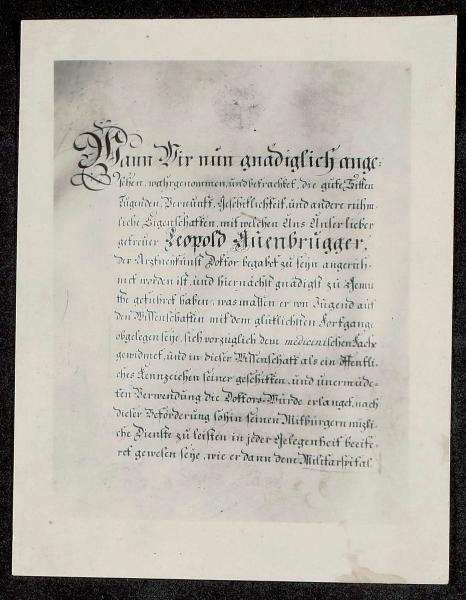 Wann Wir nun gnädiglich ange-
sehen, wahrgenommen, und betrachtet, die gute Sitten
Tugenden, Vernunft, Geschiklichkeit, und andere rühm-
liche Eigenschaften, mit welchen Uns Unser lieber
getreuer Leopold Auenbrugger,
der Arztneykunst Doktor begabet zu seyn angerüh-
met worden ist, und hiernächst gnädigst zu Gemü-
the geführet haben, was massen er von Jugend auf
den Wissenschaften mit dem glüklichsten Fortgange
obgelegen seye, sich vorzüglich dem medicinischen Fache
gewidmet, und in dieser Wissenschaft als ein öffentli-
ches Kennzeichen seiner geschikten, und unermüde-
ten Verwendung die Doktors-Würde erlanget, nach
dieser Beförderung sohin seinen Mitbürgern nüzli-
che Dienste zu leisten in jeder Gelegenheit beeife-
ret gewesen seye, wie er dann dem Militarspital